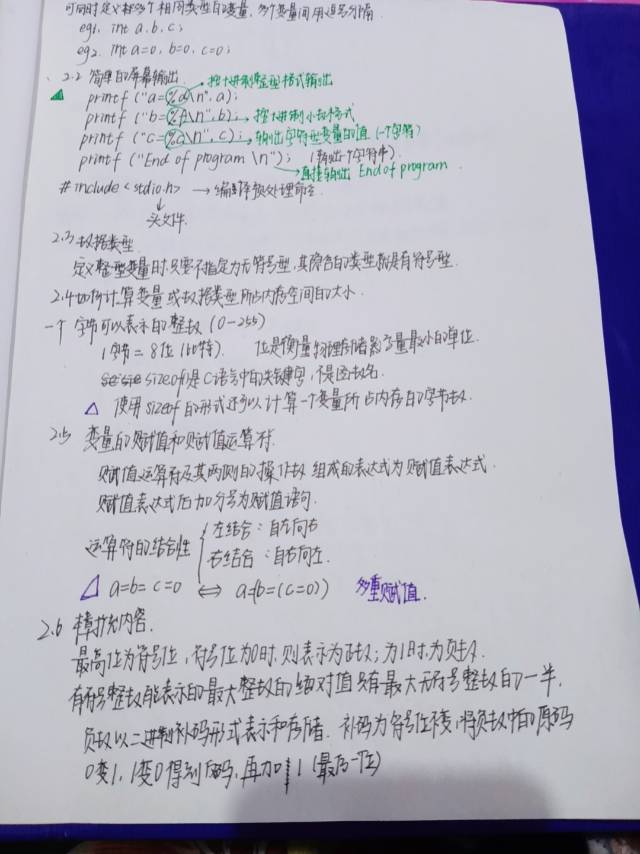 可同时定义多个相同类型的变量，多个变量间用逗号分隔
eg1. int a, b, c;
eg2. int a=0, b=0, c=0;
2.2 简单的屏幕输出
printf ("a=%d\n", a); 按十进制整型格式输出
printf ("b=%f\n", b); 按十进制小数格式
printf ("c=%c\n", c); 输出字符型变量的值 (一个字符)
printf ("End of program \n"); (输出一个字符串)
直接输出 End of program
#include <stdio.h> → 编译预处理命令
头文件
2.3 数据类型
定义整型变量时，只要不指定为无符号型，其隐含的类型就是有符号型.
2.4 如何计算变量或数据类型所占内存空间的大小.
一个字节可以表示的整数 (0-255)
1字节 = 8位 (比特). 位是衡量物理存储器容量最小的单位.
sizeof是C语言中的关键字，不是函数名.
△ 使用 sizeof 的形式还可以计算一个变量所占内存的字节数.
2.5 变量的赋值和赋值运算符.
赋值运算符及其两侧的操作数组成的表达式为赋值表达式.
赋值表达式后加分号为赋值语句.
运算符的结合性
左结合：自左向右
右结合：自右向左.
△ a=b=c=0 ⟺ a=(b=(c=0)) 多重赋值.
2.6 扩充内容.
最高位为符号位，符号位为0时，则表示为正数；为1时，为负数.
有符号整数能表示的最大整数的绝对值只有最大无符号整数的一半.
负数以二进制补码形式表示和存储. 补码为符号位不变，将负数中的原码
0变1，1变0得到反码，再加1 (最后一位)